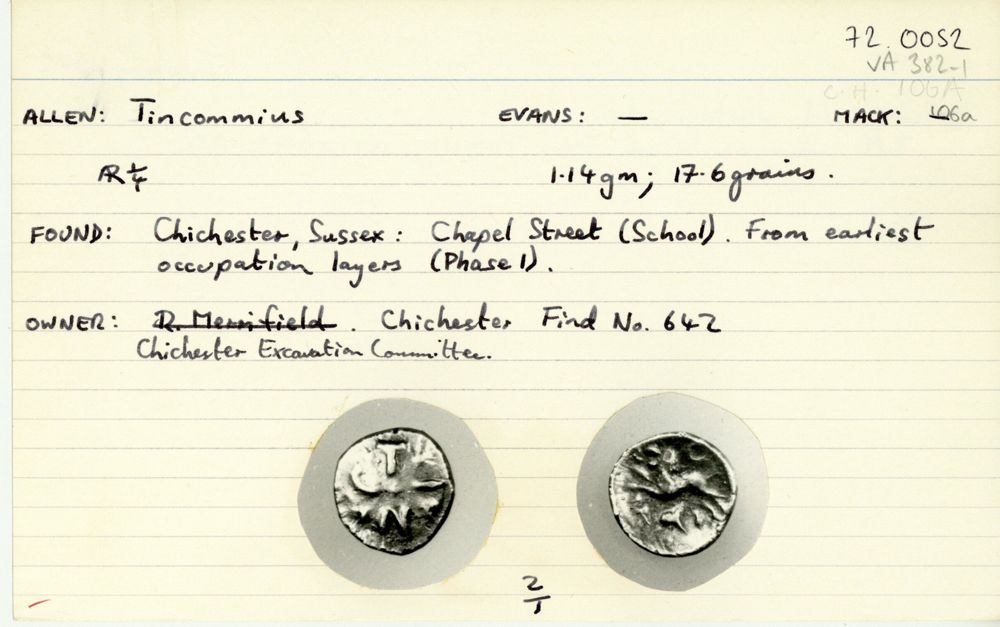 72.0052
VA 382-1
C.H. 106A
ALLEN: Tincommius EVANS: — MACK: 106a
AR ¼ 1·14gm; 17·6grains.
FOUND: Chichester, Sussex: Chapel Street (School). From earliest
occupation layers (Phase 1).
OWNER: R. Merrifield. Chichester Find No. 642
Chichester Excavation Committee.
T
N
2/1